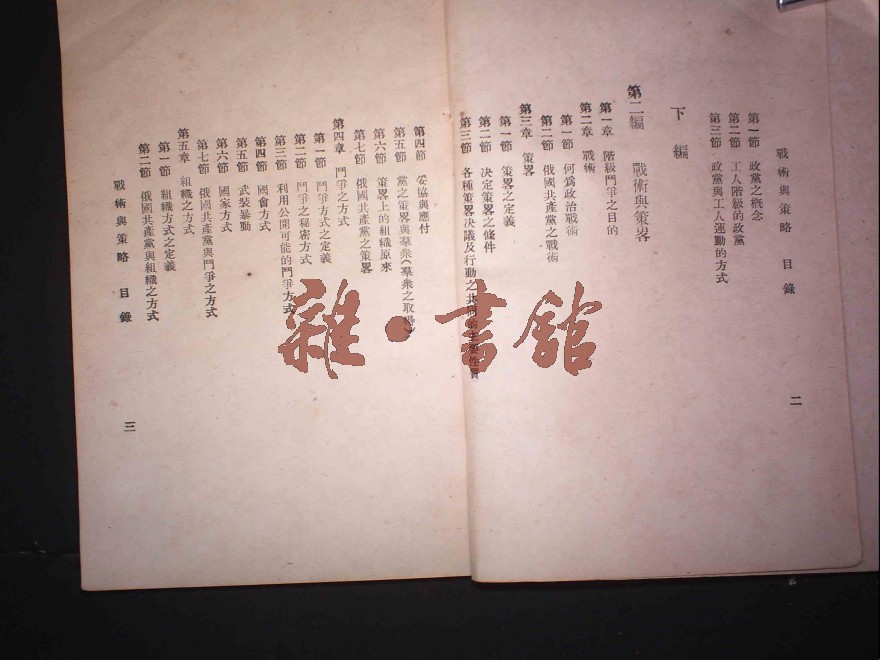 戰術與策略 目錄
二
第一節 政黨之概念
第二節 工人階級的政黨
第三節 政黨與工人運動的方式
下編
第二編 戰術與策畧
第一章 階級鬥爭之目的
第二章 戰術
第一節 何爲政治戰術
第二節 俄國共產黨之戰術
第三章 策畧
第一節 策畧之定義
第二節 決定策畧之條件
第三節 各種策畧決議及行動之共同的主要性質
第四節 妥協與應付
第五節 黨之策畧與羣衆(羣衆之取得)
第六節 策畧上的組織原來
第七節 俄國共產黨之策畧
第四章 鬥爭之方式
第一節 鬥爭方式之定義
第二節 鬥爭之秘密方式
第三節 利用公開可能的鬥爭方式
第四節 國會方式
第五節 武裝暴動
第六節 國家方式
第七節 俄國共產黨與鬥爭之方式
第五章 組織之方式
第一節 組織方式之定義
第二節 俄國共產黨與組織之方式
戰術與策略 目錄
三
雜·書館